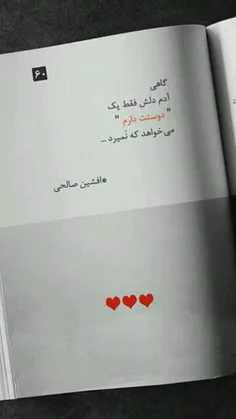 ۶۰
گاهی
آدم دلش فقط یک
" دوستت دارم "
می‌خواهد که نَمیرد ...
*افشین صالحی